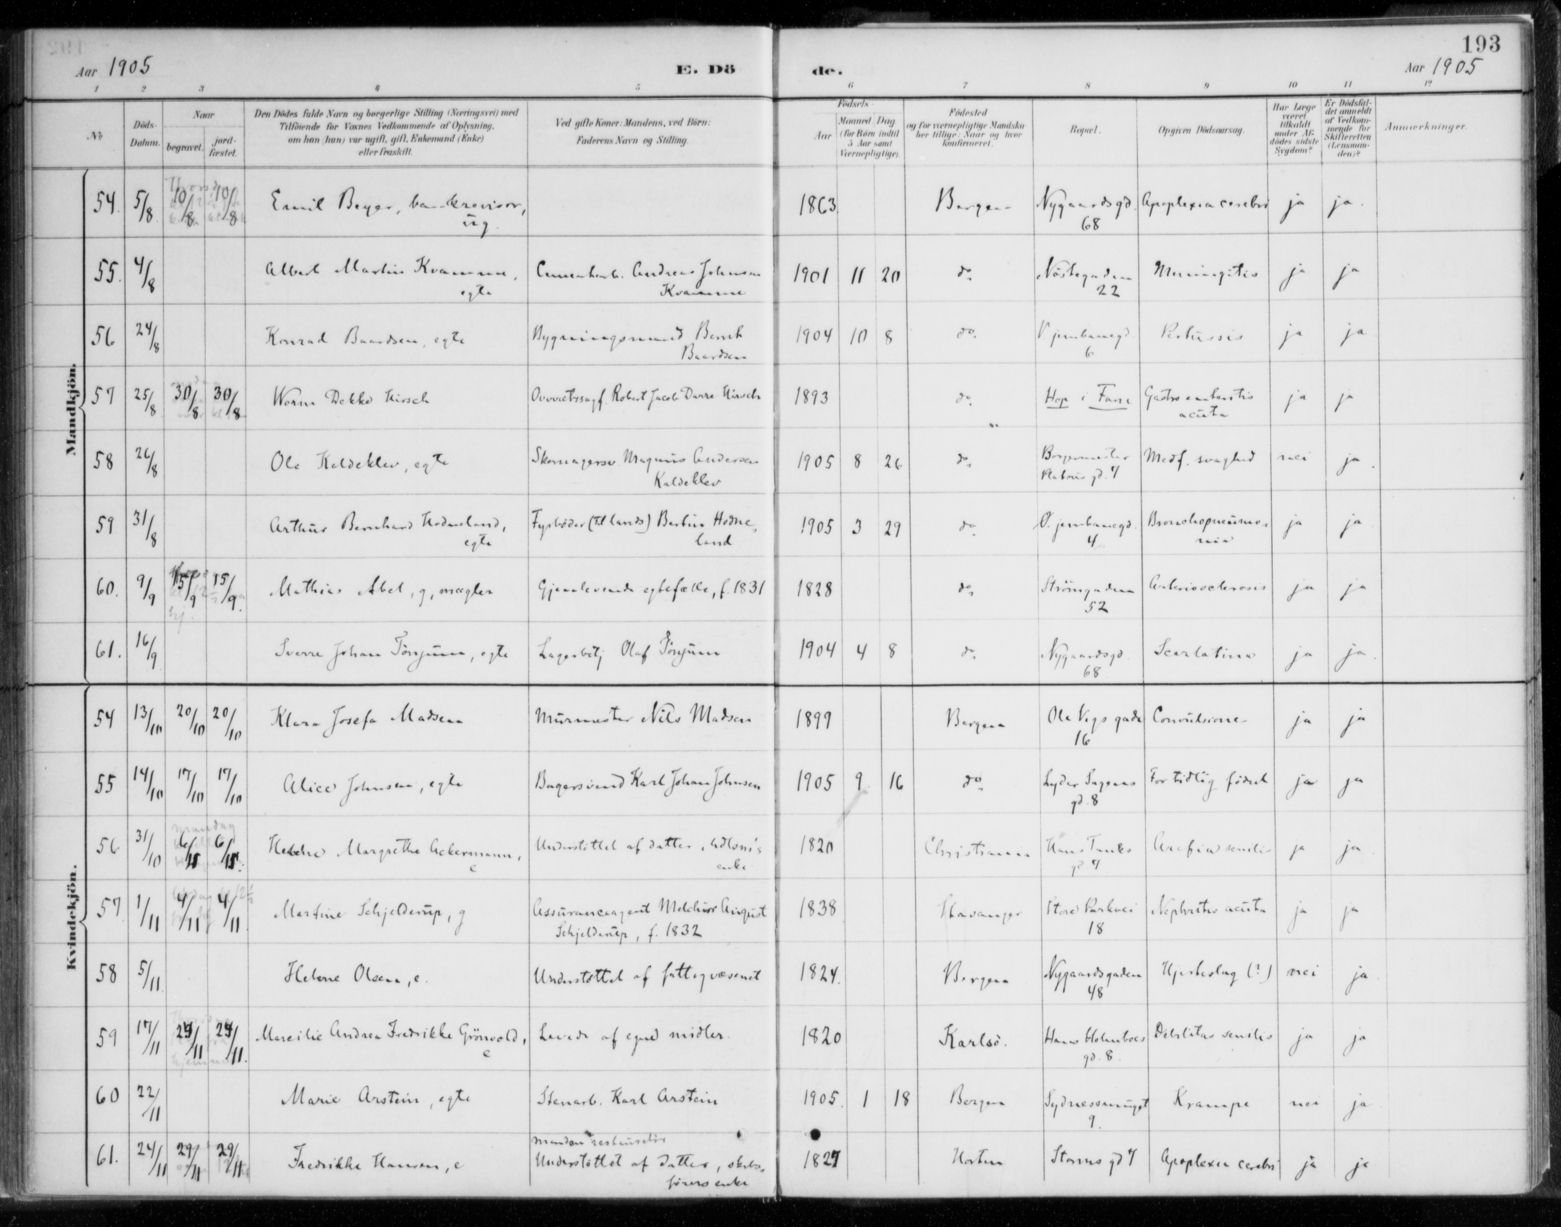 193
Aar 1905 E. Dö de. Aar 1905
1 2 3 4 5 6 7 8 9 10 11 12
No. Döds-Datum. Naar begravet. jord-fæstet. Den Dödes fulde Navn og borgerlige Stilling (Næringsvei) med Tilföiende for Voxnes Vedkommende af Oplysning, om han (hun) var ugift, gift, Enkemand (Enke) eller fraskilt. Ved gifte Koner: Mandens, ved Börn: Faderens Navn og Stilling. Födsels- Aar Maaned Dag (for Börn indtil 5 Aar samt Værnepligtige). Födested og for værnepligtige Mandskaber tillige: Naar og hvor konfirmeret. Bopæl. Opgiven Dödsaarsag. Har Læge været tilkaldt under Afdödes sidste Sygdom? Er Dödsfaldet anmeldt af Vedkommende for Skifteretten (Lensmanden)? Anmærkninger.
Mandkjön.
54. 5/8 10/8 10/8 Emil Beyer, bankrevisor, ug. 1863 Bergen Nygaardsgd. 68 Apoplexia cerebri ja ja.
55. 4/8 Albert Martin Kvamme, egte Cementarb. Andreas Johnsen Kvamme 1901 11 20 do. Nöstegaden 22 Meningitis ja ja
56 24/8 Konrad Baardsen, egte Bygningsmand Bernt Baardsen 1904 10 8 do. V. jernbanegd. 6 Pertussis ja ja
57 25/8 30/8 30/8 Worm Dekke Hirsch Overretssagf. Robert Jacob Darre Hirsch 1893 do. Hop i Fane Gastroenteritis acuta ja ja
58 26/8 Ole Kaldeklev, egte Skomagersv. Magnus Andersen Kaldeklev 1905 8 26 do. Borgermester Platous gd. 4 Medf. svaghed nei ja.
59 31/8 Arthur Bernhard Hodneland, egte Fyrböder (til lands) Bertin Hodneland 1905 3 29 do. V. jernbanegd. 4 Bronchopneumonia ja ja
60. 9/9 15/9 15/9 Mathias Abel, g, mægler Gjenlevende egtefælle, f. 1831 1828 do. Strömgaden 52 Arteriosclerosis ja ja
61. 16/9 Sverre Johan Törjum, egte Lagerbetj Olaf Törjum 1904 4 8 do. Nygaardsgd. 68 Scarlatina ja ja.
Kvindekjön.
54 13/10 20/10 20/10 Klara Josefa Madsen Murmester Nils Madsen 1899 Bergen Ole Vigs gade 16 Convulsiones ja ja
55 14/10 17/10 17/10 Alice Johnsen, egte Bagersvend Karl Johan Johnsen 1905 9 16 do. Lyder Sagens gd. 8 For tidlig födsel ja ja
56 31/10 6/11 6/11. Margrethe Ackermann, e Understöttet af datter, enke 1820 Christiania Hans Tanks gd 4 senilis ja ja
57 1/11 4/11 4/11 Martine Schjelderup, g Assuranceagent Melchior August Schjelderup, f. 1832 1838 Stavanger Store Parkvei 18 Nephritis acuta ja ja
58 5/11 Helene Olsen, e. Understöttet af fattigvæsenet 1824. Bergen Nygaardsgaden 48 Hjerteslag (?) nei ja
59 17/11 24/11 24/11. Andrea Fredrikke Grönvold, e Levede af egne midler. 1820 Karlsö. Hans Holmboes gd. 8. Debilitas senilis ja ja
60 22/11 Marie Arstein, egte Stenarb. Karl Arstein 1905. 1 18 Bergen Sydnessmuget 9. Krampe nei ja
61. 24/11 29/11 29/11 Fredrikke Hansen, e Understöttet af datter, skibsförers enke 1827 Horten Storms gd 4 Apoplexia cerebri ja ja